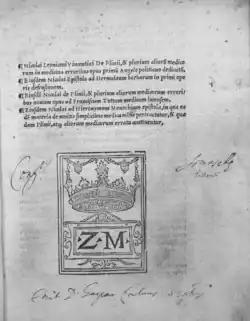 ¶Nicolai Leoniceni Vincentini De Plinii, & plurium aliorũ medicorum in medicina erroribus opus primũ Angelo politiano dedicatũ.
¶Eiusdem Nicolai Epistola ad Hermolaum barbarum in primi operis defensionem.
¶Eiusdẽ Nicolai de Plinii, & plurium aliorum medicorum erroribus nouum opus ad Franciscum Tottum medicum
¶Eiusdem Nicolai ad Hieronymum Menochium epistola, in qua
de materia de multis simplicibus medicaminibus pertractatur, & quædam Plinii, atq; aliorum medicorum errata continentur,
Z M
Emit D. Gaspar